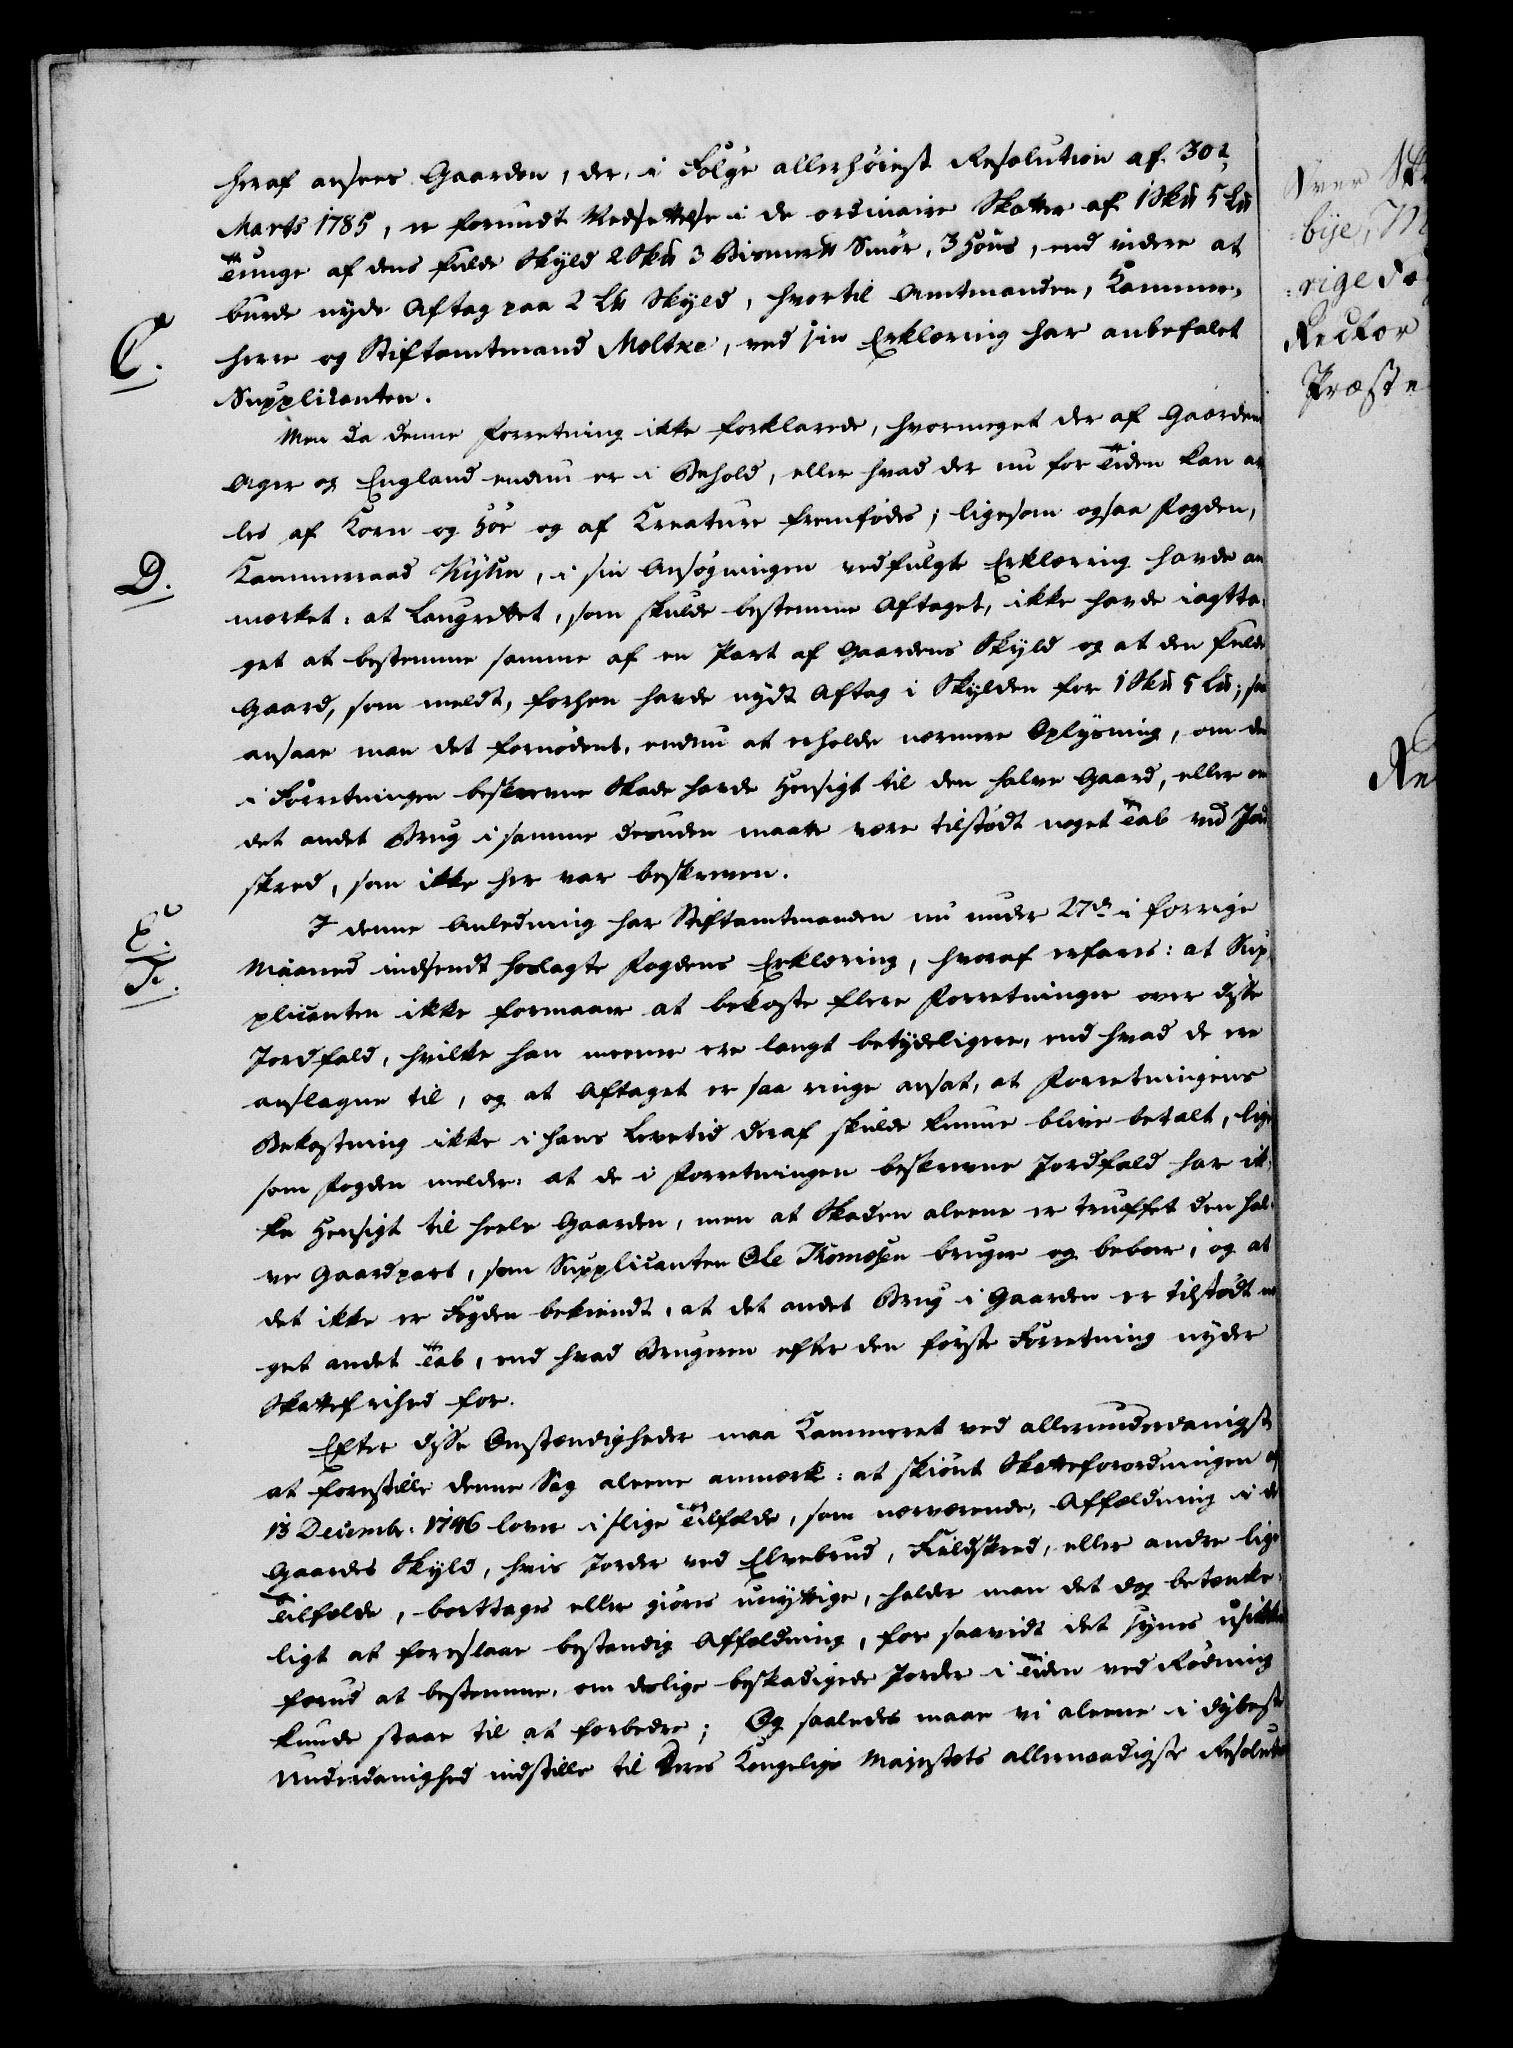 heraf ansees Gaarden, der, i Følge allerhøiest Resolution af 30te
Marts 1785, er forundt Nedsettelse i de ordinaire Skatter af 1 Sk℔ 5 L℔
Tunge af dens fulde Skyld 2 Sk℔ 3 Bismer℔ Smør, 3 Høns, end videre at
burde nyde Aftag paa 2 L℔ Skyld, hvortil Amtmanden, Kammer-
C.
herre og Stiftamtmand Moltke, ved sin Erklæring har anbefalet
Supplicanten.
Men da denne Forretning ikke forklarede, hvormeget der af Gaardens
Ager og England endnu er i Behold, eller hvad der nu for Tiden kan av
les af Korn og Høe og af Kreature fremfødes; ligesom ogsaa Fogden,
D.
Kammerraad Kyhn, i sin Ansøgningen vedfulgte Erklæring havde an
mærket: at Laugrettet, som skulde bestemme Aftaget, ikke havde iagtta-
get at bestemme samme af en Part af Gaardens Skyld og at den fulde
Gaard, som meldt, forhen havde nydt Aftag i Skylden for 1 Sk℔ 5 L℔; saa
ansaae man det fornødent, endnu at erholde nærmere Oplysning, om den
i Forretningen beskrevne Skade havde Hensigt til den halve Gaard, eller om
det andet Brug i samme desuden maatte være tilstødt noget Tab ved Jord
skred, som ikke her var beskreven.
E.
I denne Anledning har Stiftamtmanden nu under 27de i forrige
F.
Maaned indsendt hoslagte Fogdens Erklæring, hvoraf erfares: at Sup-
plicanten ikke formaaer at bekoste flere Forretninger over disse
Jordfald, hvilke han meener ere langt betydeligere, end hvad de ere
anslagne til, og at Aftaget er saa ringe ansat, at Forretningens
Bekostning ikke i hans Levetid deraf skulde kunne blive betalt, lige
som Fogden melder: at de i Forretningen beskrevne Jordfald har ik-
ke Hensigt til heele Gaarden, men at Skaden aleene er truffet den hal-
ve Gaardpart, som Supplicanten Ole Thomesen bruger og beboer, og at
det ikke er Fogden bekiendt, at det andet Brug i Gaarden er tilstødt no
get andet Tab, end hvad Brugeren efter den første Forretning nyder
Skattefrihed for.
Efter disse Omstændigheder maa Kammeret ved allerunderdanigst
at forestille denne Sag aleene anmærke: at skiønt Skatteforordningen af
13 Decembr: 1746 lover i slige Tilfælde, som nærværende, Affældning i de
Gaardes Skyld, hvis Jorder ved Elvebrud, Fieldskred, eller andre lige
Tilfælde, borttages eller giøres unyttige, holder man det dog betænke-
ligt at foreslaae bestandig Affældning, for saavidt det synes usikkert
forud at bestemme, om deslige beskadigede Jorder i Tiden ved Rødning
kunde staae til at forbedre; Og saaledes maae vi aleene i dybeste
Underdanighed indstille til Deres Kongelige Majestæts allernaadigste Resolution